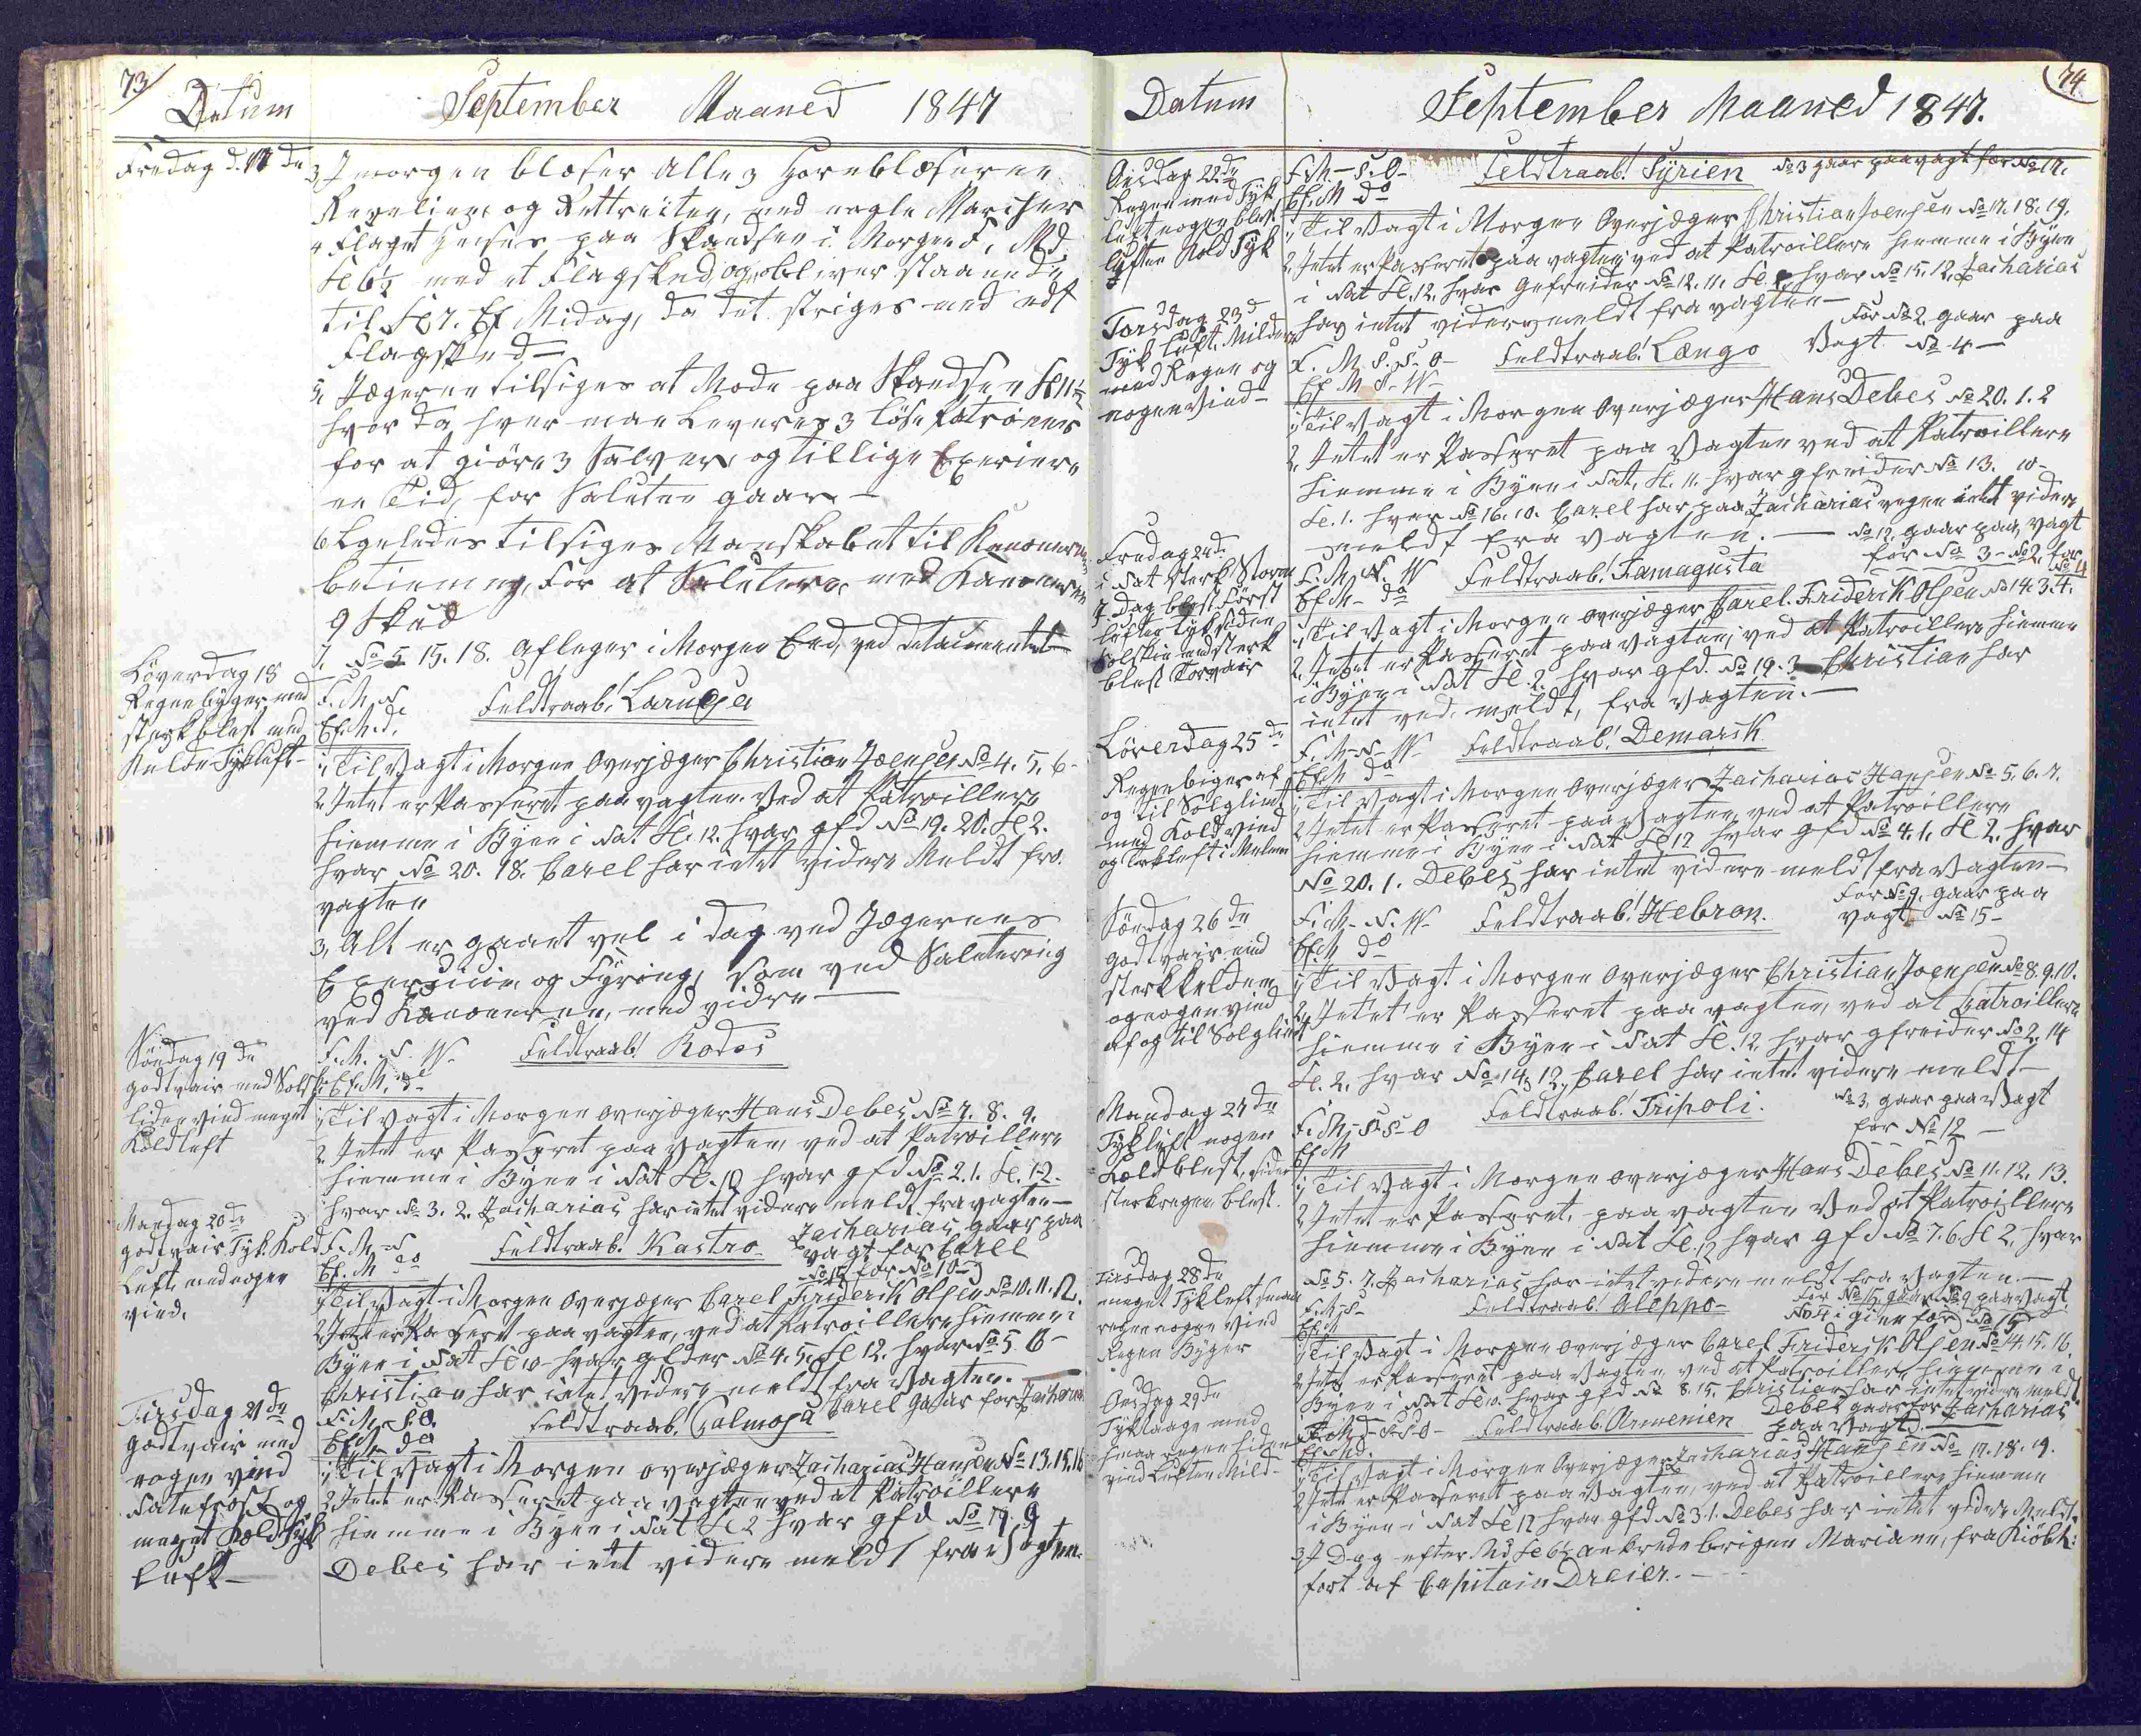 73
Datum
September Maaned 1847
Fredag d. 17 de
3, I morgen blæser Alle 3 Hornblæserne
Revelien og Rettraiten, med nogle Marcher
4 Flaget heises paa Skandsen i Morgen F. Md.
Kl 6½ med et Flagskud, og bliver staaende
til Kl 7. Ef Midag, da det striges med edt
Flagskud —
5, Jægerne tilsiges at Mode paa Skandsen Kl 11½
hvor da hver man Leveres 3 løse Patroner
for at giøre 3 Salver, og tillige Exersere
en Tid, for Saluten gaar. —
6 Ligeledes tilsiges Manskabet til Kanonernes
betiening, for at Salutere med Kanonerne
9 Skud
7. No 5. 15. 18. afleger i Morgen Eed, ved Detacementet
Løverdag 18
Regnbyger med
sterk blæst med
Kulde Tyk luft —
F. M. N.
Ef. M. d.
Feldtraab! Larnega
1, Til Vagt i Morgen Overjæger Christian Joensen No 4. 5. 6 -
2 Intet er Passeret paa vagten ved at Patroillere
hiemme i Byen i Nat Kl. 12. hvar gfd No 19. 20. Kl 2.
hvar No 20. 18. Carel har intet videre Meldt fra
vagten
3, Alt er gaaet vel i dag ved Jægernes
Exersicie og Fyring, som ved Salutering
ved Kanonerne, med videre —
Søndag 19 de
godtvair med Solsk:
liden vind meget
Koldluft
F. M. N. W.
Ef. M. do
Feldtraab! Rodos
1, Til Vagt i Morgen overjæger Hans Debes No 7. 8. 9.
2 Intet er Passeret paa Vagten, ved at Patroillere
hiemme i Byen i Nat Kl. 10 hvar gfd No 2. 1. Kl. 12.
hvar No 3. 2. Zacharias har intet videre meldt fra vagten —
Mandag 20 de
godtvair Tyk Kold
Luft med nogen
vind.
F. M. N
Ef. M do
Feldtraab! Kastro
Zacharias, gaar paa
vagt for Carel
No 15 for No 10 -
1 Til Vagt i Morgen Overjæger Carel Friderik Olsen No 10. 11. 12.
2 Intet er Passeret paa vagten, ved at Patroillere hiemme i
Byen i Nat Kl 10 hvar gfider No 4. 5. Kl 12. hvar No 5. 6 -
Christian har intet videre meldt fra Vagten. —
Tirsdag 21 de
godtvair med
nogen vind
Natefrost og
meget Kold Tyk
luft —
F. M. S O.
Ef. M do
Feldtraab! Calmosa
Carel Gaar for Zacharias
1, Til Vagt i Morgen overjæger Zacharias Hansen No 13. 15. 16
2 Intet er Passeret paa vagten ved at Patroillere
hiemme i Byen i Nat Kl 2 hvar gfd No 19. 9
Debes har intet videre meldt fra Vagten.
74
Datum
September Maaned 1847.
Onsdag 22 de
Regen med Tyk
luft nogen blæst
luften Kold Tyk
F. M - S. O -
Ef. M do
Feldtraab! Syrien
No 3 gaar paa vagt for No 17.
1, Til Vagt i Morgen Overjæger Christian Joensen No 17. 18. 19.
2, Intet er Passeret paa vagten, ved at Patroillere hiemme i Byen
i Nat Kl. 12. hvar Gefreider No 12. 11. Kl. hvar No 15. 12. Zacharias
har intet videre meldt fra vagten —
Torsdag 23 d
Tyk Luft. Milder
med Regen og
nogen vind —
F. M S. S. O -
Ef M S. W -
Feldtraab! Lango
For No 2. gaar paa
Vagt No 4 —
1, Til Vagt i Morgen Overjæger Hans Debes No 20. 1. 2
2, Intet er Passeret paa Vagten ved at Patroillere
hiemme i Byen i Nat, Kl. 11. hvar gfreider No 13. 10 -
Kl. 1. hvar No 16. 10. Carel har paa Zacharias vegne intet videre
meldt fra Vagten. —
Fredag 24 de
i Nat sterk Storm
I Dag blæst først
luften Tyk siden
solskin med sterk
blæst Torvair
F. M N. W
Ef M - do
Feldtraab! Famagusta
No 12, gaar paa vagt
for No 3 - No 2. for
No 4
1, Til Vagt i Morgen overjæger Carel Friderik Olsen No 14. 3. 4.
2, Intet er Passeret paa vagten, ved at Patroillere hiemme
i Byen i Nat Kl. 2. hvar gfd. No 19. 3 Christian har
intet vid. meldt, fra Vagten. —
Løverdag 25 de
Regen biger af
og til Solglimt
med Kold vind
og Torluft i Melem
F. M - N - W -
Ef M do
Feldtraab! Demarsk
1, Til Vagt i Morgen Overjæger Zacharias Hansen No 5. 6. 7.
2 Intet er Passeret paa Vagten ved at Patroillere
hiemme i Byen i Nat Kl 12 hvar gfd No 4. 1. Kl 2. hvar
No 20. 1. Debes har intet videre meldt fra Vagten —
Søndag 26 de
godtvair med
sterk kulde
og nogen vind
af og til Solglimt
F. M - N. W -
Ef M do -
Feldtraab! Hebron.
For No 9, gaar paa
Vagt No 15 -
1, Til Vagt i Morgen Overjæger Christian Joensen No 8. 9. 10.
2, Intet er Passeret paa vagten, ved at Patroillere
hiemme i Byen i Nat Kl. 12, hvar gfreider No 2. 14
Kl. 2. hvar No 14. 12. Carel har intet videre meldt —
Mandag 27 de
Tykluft nogen
Kold blæst, siden
sterk regen blæst.
F. M. - S. S - O
Ef M
Feldtraab! Tripoli.
No 3. gaar paa Vagt
for No 12 —
1, Til Vagt i Morgen overjæger Hans Debes No 11. 12. 13.
2 Intet er Passeret, paa vagten ved at Patroillere
hiemme i Byen i Nat Kl. 12 hvar gfd No 7. 6. Kl 2. hvar
No 5. 7. Zacharias har intet videre meldt fra Vagten. —
Tirsdag 28 de
meget Tykluft smaa
regen nogen Vind
Regen Byger
F. M - S -
Ef M
Feldtraab! Aleppo -
For No 15, gaar No 9 paa Vagt.
No 4 igien for No 15
1 Til Vagt i Morgen overjæger Carel Friderik Olsen No 14. 15. 16.
2 Intet er Passeret paa Vagten ved at Patroillere hiemme i
Byen i Nat Kl 10. hvar gfd No 8. 15. Christian har intet videre meldt.
Onsdag 29 de
Tyktaage med
smaa regen siden
vind Luften Mild -
F. M - S. S. O -
Ef. M d.
Feldtraab! Armenien
Debes gaar for Zacharias
paa Vagt.
1, Til Vagt i Morgen Overjæger Zacharias Hansen No 17. 18. 19.
2 Intet er Passeret paa Vagten, ved at Patroillere hiemme
i Byen i Nat Kl 12 hvar gfd No 3. 1. Debes har intet videre Meldt.
3, I Dag efter Md Kl 6½ ankrede brigen Mariane, fra Kiöbh:
fört af Capitain Dreier. —